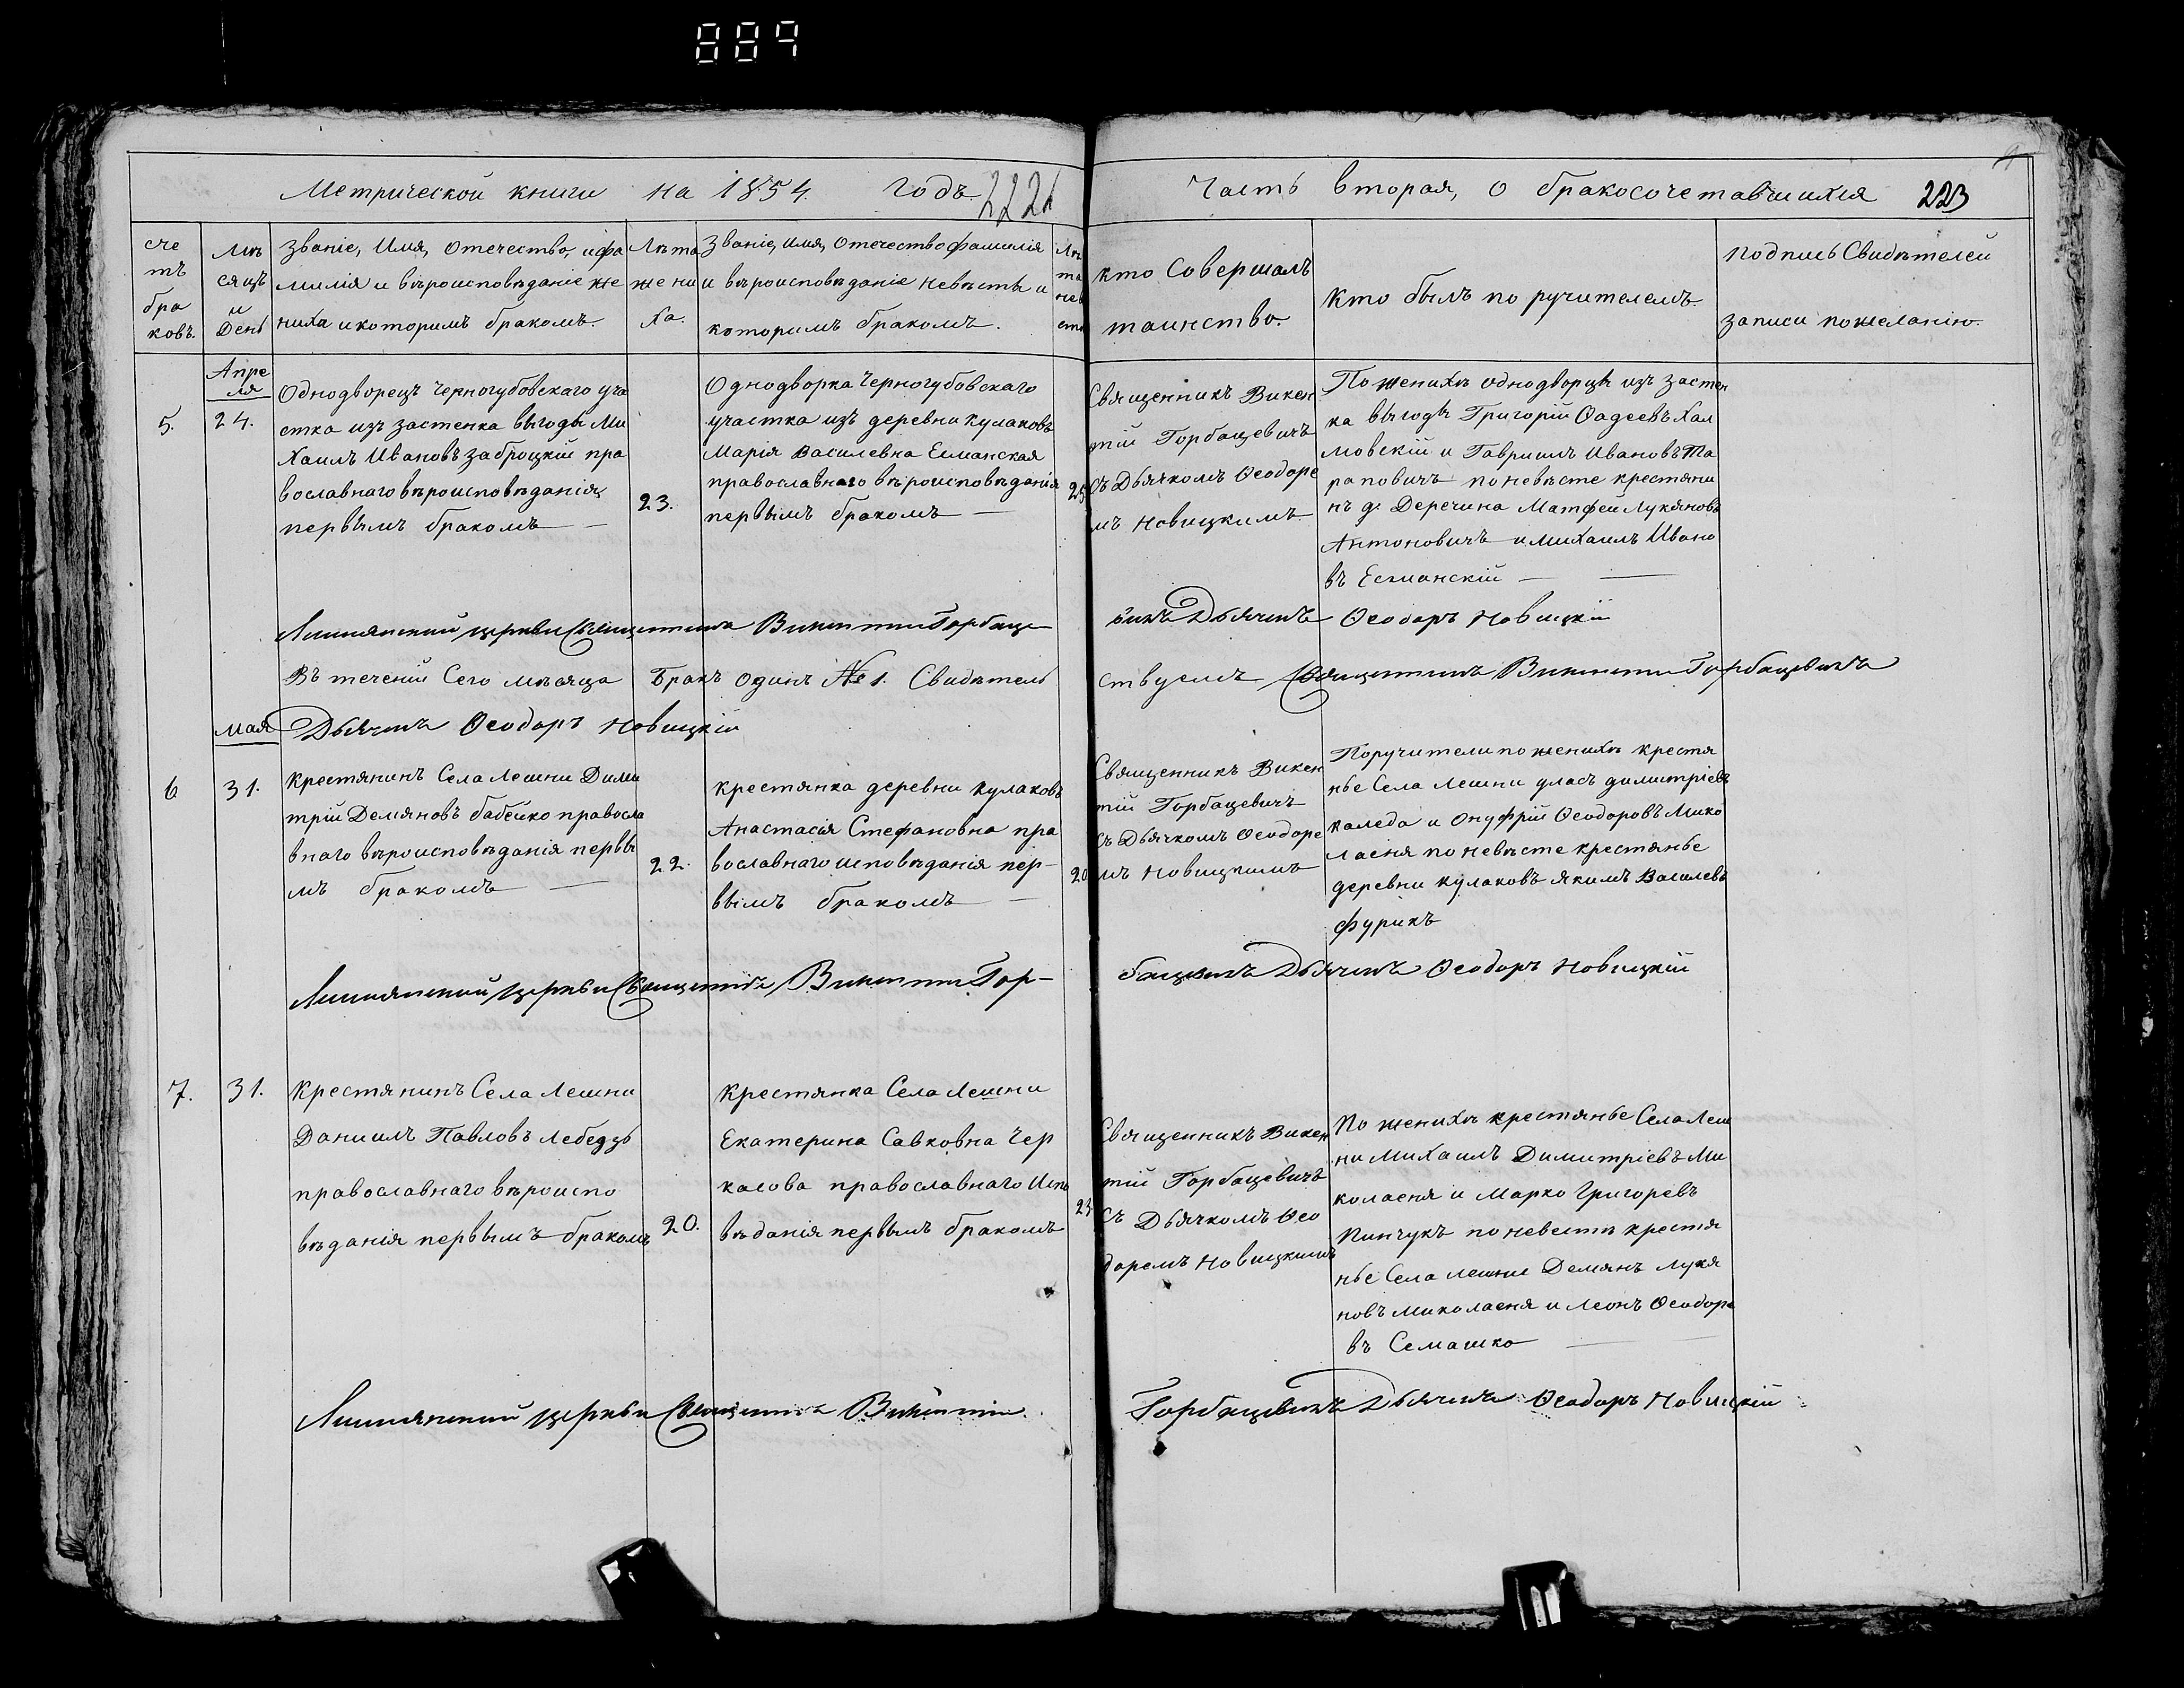 889
Метрической книги на 1854. годъ 222
Часть вторая, о бракосочетавшихся 223
сче
тъ
бра
ковъ.
Мѣ
сяцъ
и
День
Званіе, Имя, Отечество, и фа
милія и вѣроисповѣданіе же
ниха и которимъ бракомъ.
Лѣта
жени
ха.
Званіе, имя, Отечество фамилія
и вѣроисповѣданіе невѣсты и
которимъ бракомъ.
Лѣ
та
нев
сты
кто Совершалъ
таинство.
Кто былъ по ручителемъ
подпись Свидѣтелей
записи по желанію.
Апре
ля
5.
24.
Однодворецъ Черногубовскаго уча
стка изъ застенка выгоды Ми
хаилъ Ивановъ Заброцкій пра
вославнаго вѣроисповѣданія
первымъ бракомъ
23.
Однодворка Черногубовскаго
участка изъ деревни Кулаковъ
Марія Василевна Есманская
православнаго вѣроисповѣданія
первымъ бракомъ
Священникъ Викен
тій Горбацевичъ
съ Дьячкомъ Ѳеодоро
мъ Новицкимъ
По женихѣ однодворцы изъ застен
ка выгоды Григорій Ѳадеевъ Хал
мовскій и Гавриилъ Ивановъ Та
раповичъ по невѣсте крестяни
нъ д. Деречина Матфей Лукяновъ
Антоновичъ и Михаилъ Ивано
въ Есманскій
Лешнянской церкви Священникъ Викентій Горбаце
вичъ Дьячекъ Ѳеодоръ Новицкій
Въ теченіи Сего мѣсяца Бракъ одинъ № 1. Свидѣтель
ствуемъ Священникъ Викентій Горбацевичъ
мая
Дьячекъ Ѳеодоръ Новицкій
6
31.
Крестянинъ Села Лешни Дими
трій Демяновъ Бабейко правосла
внаго вѣроисповѣданія первы
мъ бракомъ
22.
крестянка деревни Кулаковъ
Анастасія Стефановна пра
вославнаго исповѣданія пер-
вымъ бракомъ
20
Священникъ Викен
тій Горбацевичъ
съ Дьячкомъ Ѳеодоро
мъ Новицкимъ
Поручители по женихѣ крестя
нье Села Лешни Уласъ Димитріевъ
Каледа и Онуфрій Ѳеодоровъ Мико
лаеня по невѣсте крестянье
деревни Кулаковъ Якимъ Василевъ
Фурикъ
Лешнянской церкви Священникъ Викентій Гор-
бацевичъ Дьячекъ Ѳеодоръ Новицкій
7.
31.
Крестянинъ Села Лешни
Даниилъ Павловъ Лебедзь
православнаго вѣроиспо
вѣданія первымъ бракомъ
20.
Крестянка Села Лешни
Екатерина Савковна Чер
касова православнаго Испо
вѣданія первымъ бракомъ
23
Священникъ Викен
тій Горбацевичъ
съ Дьячкомъ Ѳео
доромъ Новицкимъ
По женихѣ крестянье Села Леш
ни Михаилъ Димитріевъ Ми
колаеня и Марко Григоревъ
Пинчукъ по невестѣ крестя
нье Села Лешни Демянъ Лукя
новъ Миколаеня и Леонъ Ѳеодоро
въ Семашко
Лешнянской церкви Священникъ Викентій
Горбацевичъ Дьячекъ Ѳеодоръ Новицкій